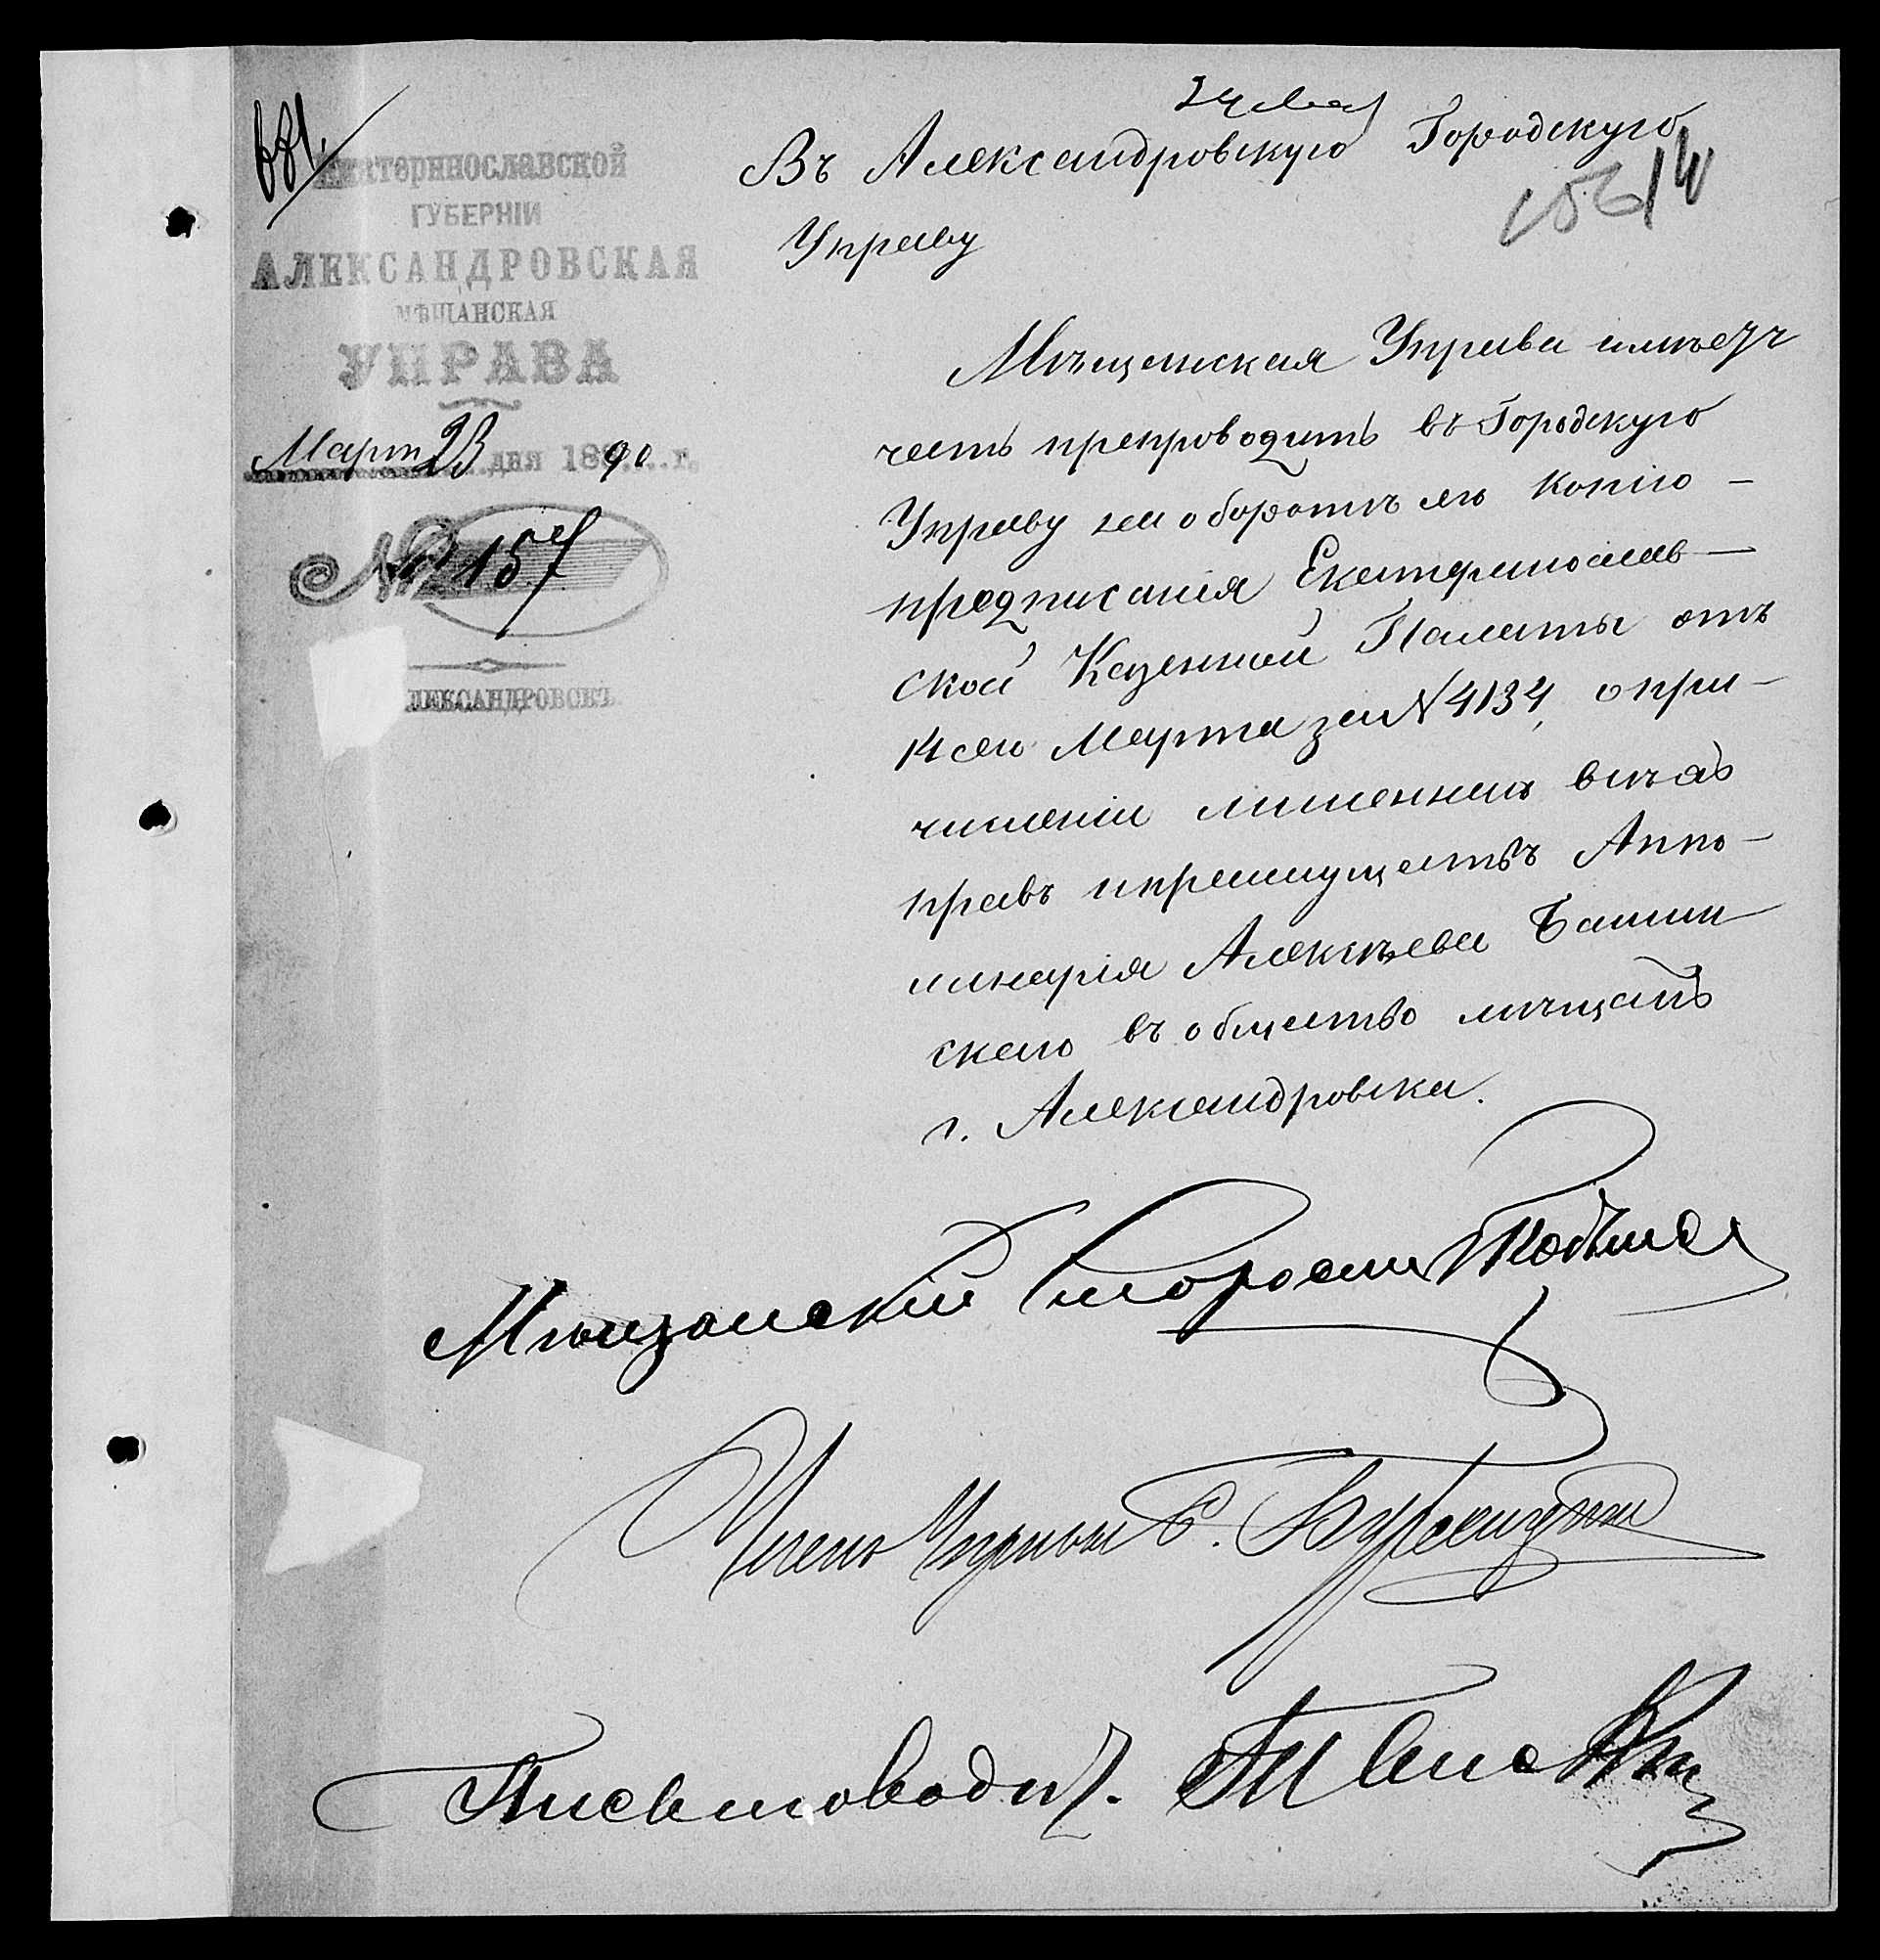 681.
Екатеринославской
ГУБЕРНІИ
АЛЕКСАНДРОВСКАЯ
МѢЩАНСКАЯ
УПРАВА
Март 23 дня 1890 г.
№ 157
АЛЕКСАНДРОВСКЪ
Въ Александровскую Городскую
Управу
Мѣщанская Управа имѣетъ
честь препроводить въ Городскую
Управу на оборотѣ же копію
предписанія Екатеринослав-
ской Казенной Палаты отъ
14 сего Марта за № 4134, о при-
численіи лишеннаго всѣхъ
правъ и преимуществъ Аппо-
линарія Алексѣева Башин
скаго въ общество мѣщанъ
г. Александровска.
Мѣщанскій Староста
Членъ Управы
Письмоводит.